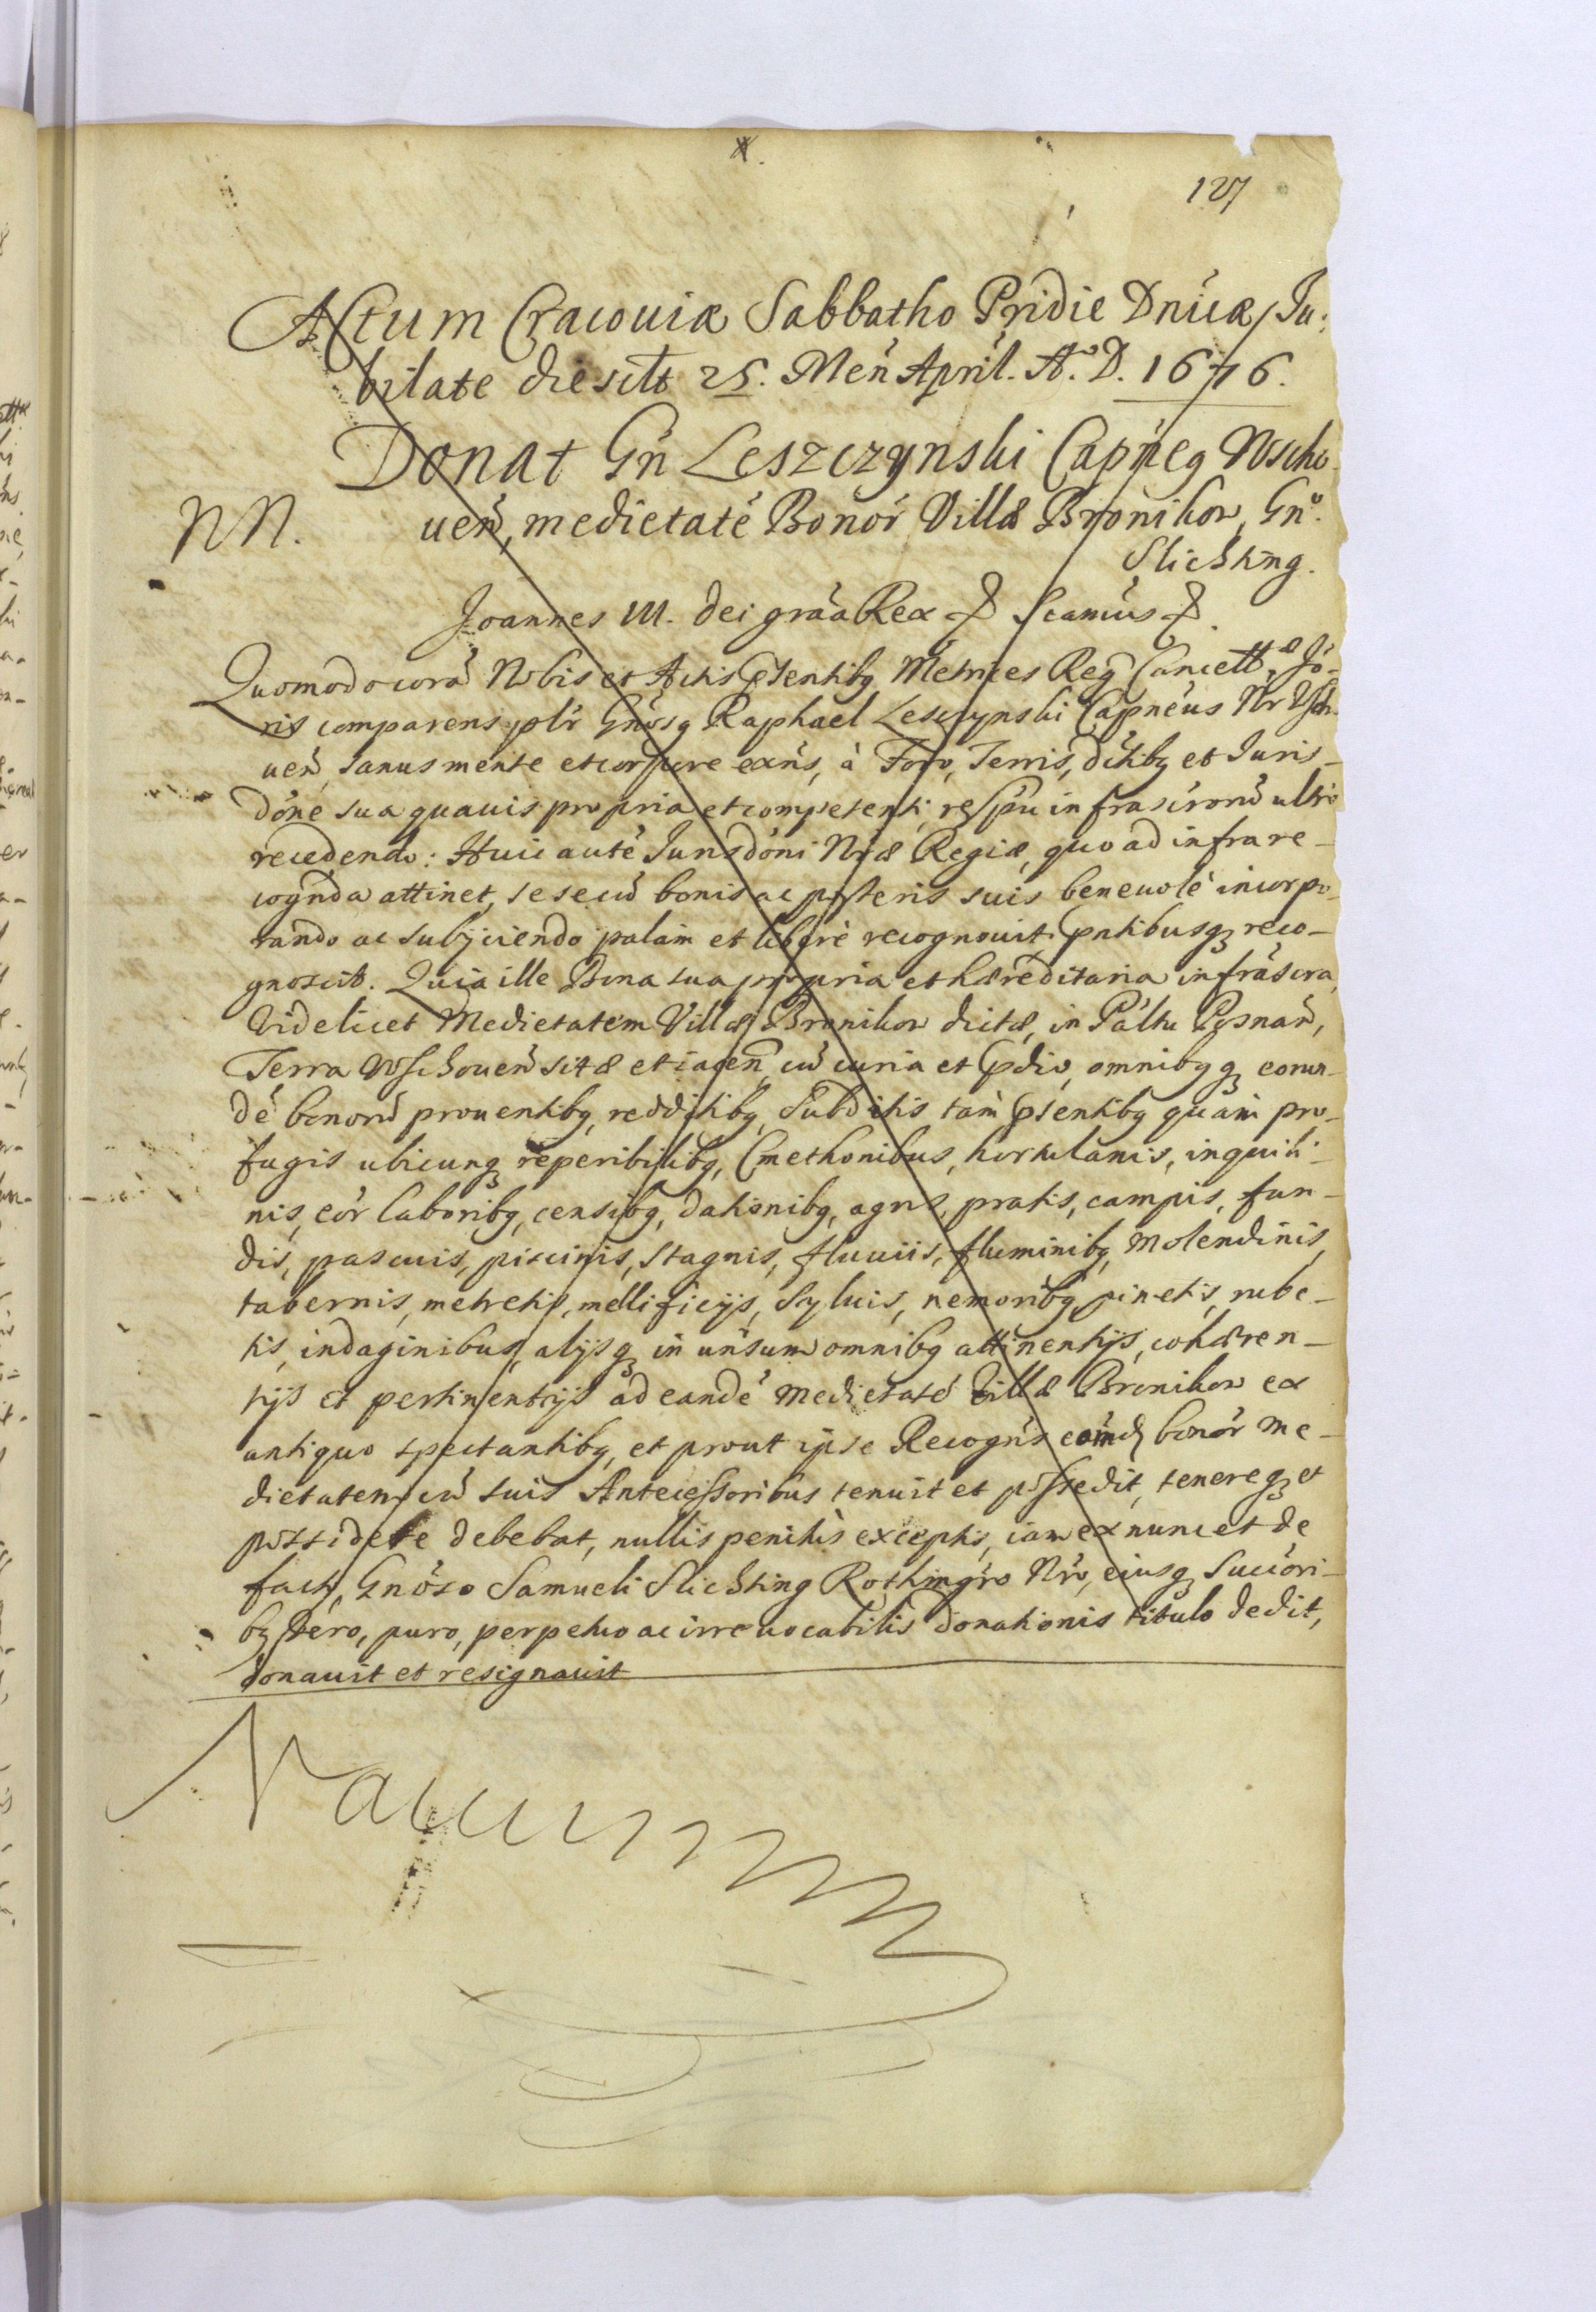 127
Actum Cracouiæ Sabbatho Pridie Dnicæ Ju:
bilate die scilt 25. Men April. A.D. 1676.
Donat Gn Leszczynski Capneq Wscho
ueń, medietaté Bonór Villæ Bronikow, Gn°.
NN.
Slichting.
Joannes III. Dei gráa Rex & Scamús &.
Quomodo corá Nobis et Actis Pstentibq Metrices Reg Cancellæ
ris comparens plr Gnósq Raphael Lesczynski Capnéus Nr Vscho
ueń, sanus mente et corpore exńs, à Foro, Terris, dictibq et Juris-
dóne sua quauis propria et competenti, respu infrascrorú ultró
recedendo: Huic auté Jurisdóni Nræ Regiæ, quo ad infra re-
cognda attinet, se secú bonis ac posteris suis beneuolè incorpo
rando ac subijciendo palàm et liberè recognouit, pntibusq reco-
gnoscit. Quia ille Bona sua propria et hæreditaria infráscra,
Videlicet Medietatem Villæ Bronikow dictæ, in Páltu Posnań,
Terra Wschoueń sitæ et iaceń, cú curia et Pdio, omnibq q eorun-
dé bonorú prouentibq, redditibq, Subditis tàm Pstentibq quàm pro-
fugis ubicunq reperibilibq, Cmethonibus, hortulanis, inquili-
nis, eór laboribq, censibq, dationibq, agris, pratis, campis, fun-
dis, pascuis, piscinis, stagnis, fluuiis, fluminibq, Molendinis,
tabernis, metretis, mellificijs, Syluis, nemoribq, pinetis, rube-
tis, indaginibus, alijsq in uńsum omnibq attinentijs, cohæren-
tijs et pertinentijs ad eandé Medietaté Villæ Bronikow ex
antiquo spectantibq, et prout ipse Recogńs bonór me-
dietatem cú suis Antecessoribus tenuit et possedit, tenereq et
possidere debebat, nullis penitùs exceptis, iam ex nunc et de
facto, Gnóso Samueli Slichting Rothmgró Nró, eiusq Succóri-
bq Dero, puro, perpetuo ac irreuocabilis donationis titulo dedit,
donauit et resignauit
Vacuum